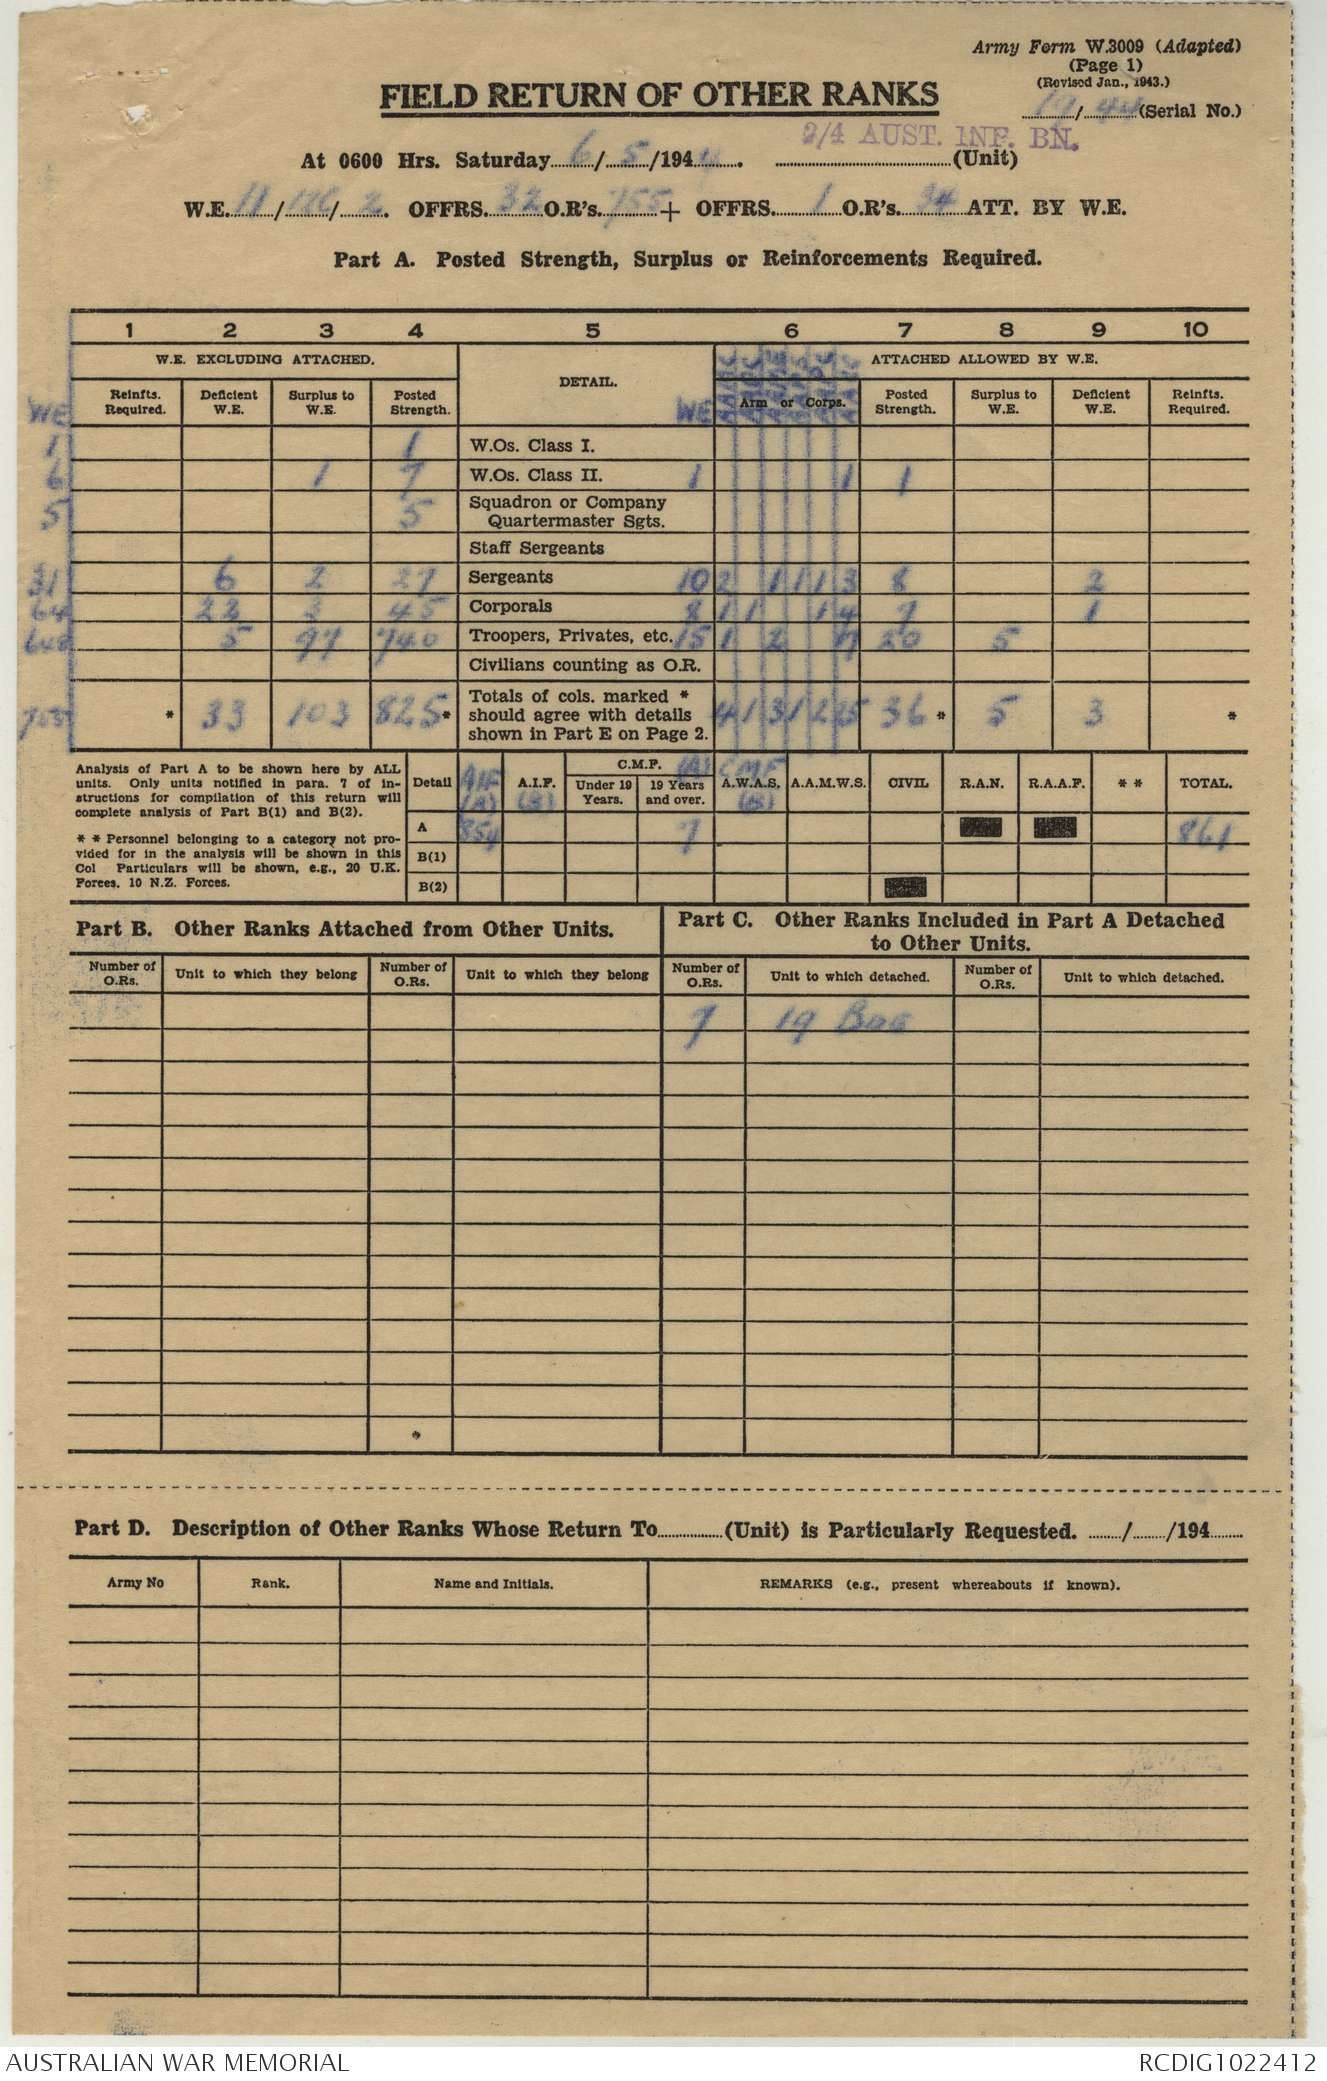 Army Form W.3009 (Adapted)
(Page 1)
(Revised Jan., 1943.)
FIELD RETURN OF OTHER RANKS
19/44 (Serial No.)
2/4 AUST. INF. BN.
At 0600 Hrs. Saturday 6/5/1944. (Unit)
W.E. 11/ / 2. OFFRS. 32 O.R's. 755 + OFFRS. 1 O.R's. 34 ATT. BY W.E.
Part A. Posted Strength, Surplus or Reinforcements Required.
1 2 3 4 5 6 7 8 9 10
W.E. EXCLUDING ATTACHED. DETAIL. ATTACHED ALLOWED BY W.E.
WE Reinfts. Required. Deficient W.E. Surplus to W.E. Posted Strength. WE Arm or Corps. Posted Strength. Surplus to W.E. Deficient W.E. Reinfts. Required.
1 1 W.Os. Class I.
6 1 7 W.Os. Class II. 1 1 1
5 5 Squadron or Company
Quartermaster Sgts.
Staff Sergeants
31 6 2 27 Sergeants 10 2 1 1 1 3 8 2
64 22 3 45 Corporals 8 1 1 1 4 7 1
648 5 97 740 Troopers, Privates, etc. 15 1 2 17 20 5
Civilians counting as O.R.
755 * 33 103 825* Totals of cols. marked *
should agree with details
shown in Part E on Page 2. 4 1 3 1 2 25 36 * 5 3 *
Analysis of Part A to be shown here by ALL
units. Only units notified in para. 7 of in-
structions for compilation of this return will
complete analysis of Part B(1) and B(2).
* * Personnel belonging to a category not pro-
vided for in the analysis will be shown in this
Col Particulars will be shown, e.g., 20 U.K.
Forces, 10 N.Z. Forces.
Detail AIF (A) A.I.F. (B) C.M.F. (A) Under 19 Years. 19 Years and over. CMF A.W.A.S. (B) A.A.M.W.S. CIVIL R.A.N. R.A.A.F. * * TOTAL.
A 854 7 861
B(1)
B(2)
Part B. Other Ranks Attached from Other Units.
Part C. Other Ranks Included in Part A Detached
to Other Units.
Number of O.Rs. Unit to which they belong Number of O.Rs. Unit to which they belong Number of O.Rs. Unit to which detached. Number of O.Rs. Unit to which detached.
7 19 Bde
Part D. Description of Other Ranks Whose Return To (Unit) is Particularly Requested. / /194
Army No Rank. Name and Initials. REMARKS (e.g., present whereabouts if known).
AUSTRALIAN WAR MEMORIAL RCDIG1022412